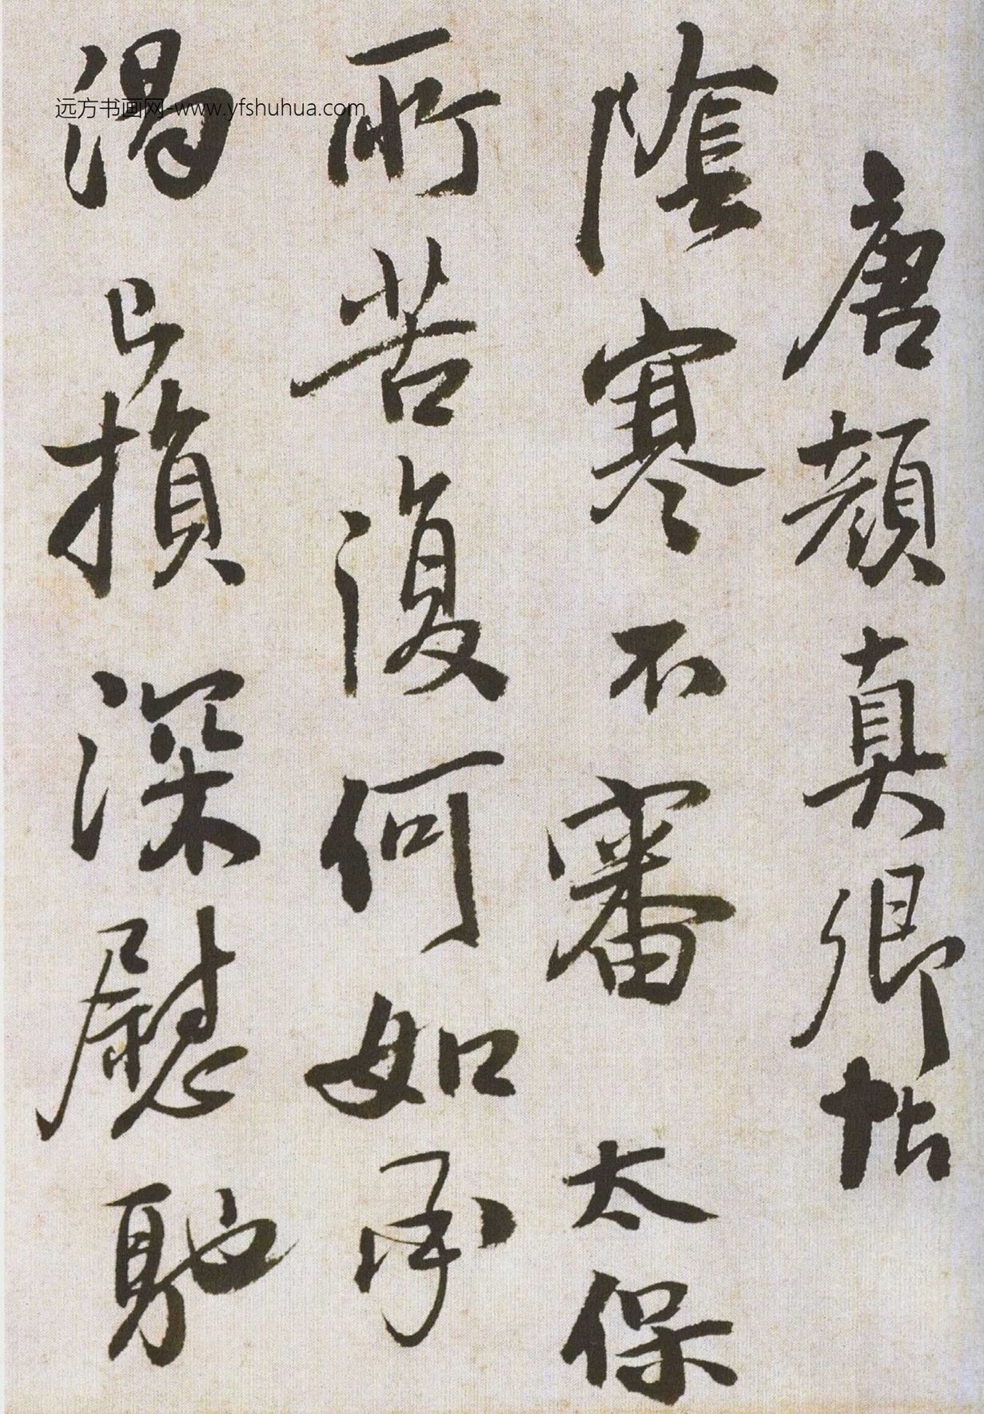 唐顏真卿帖
陰寒不審太保
所苦復何如承
渴已損深慰馳
远方书画网-www.yfshuhua.com